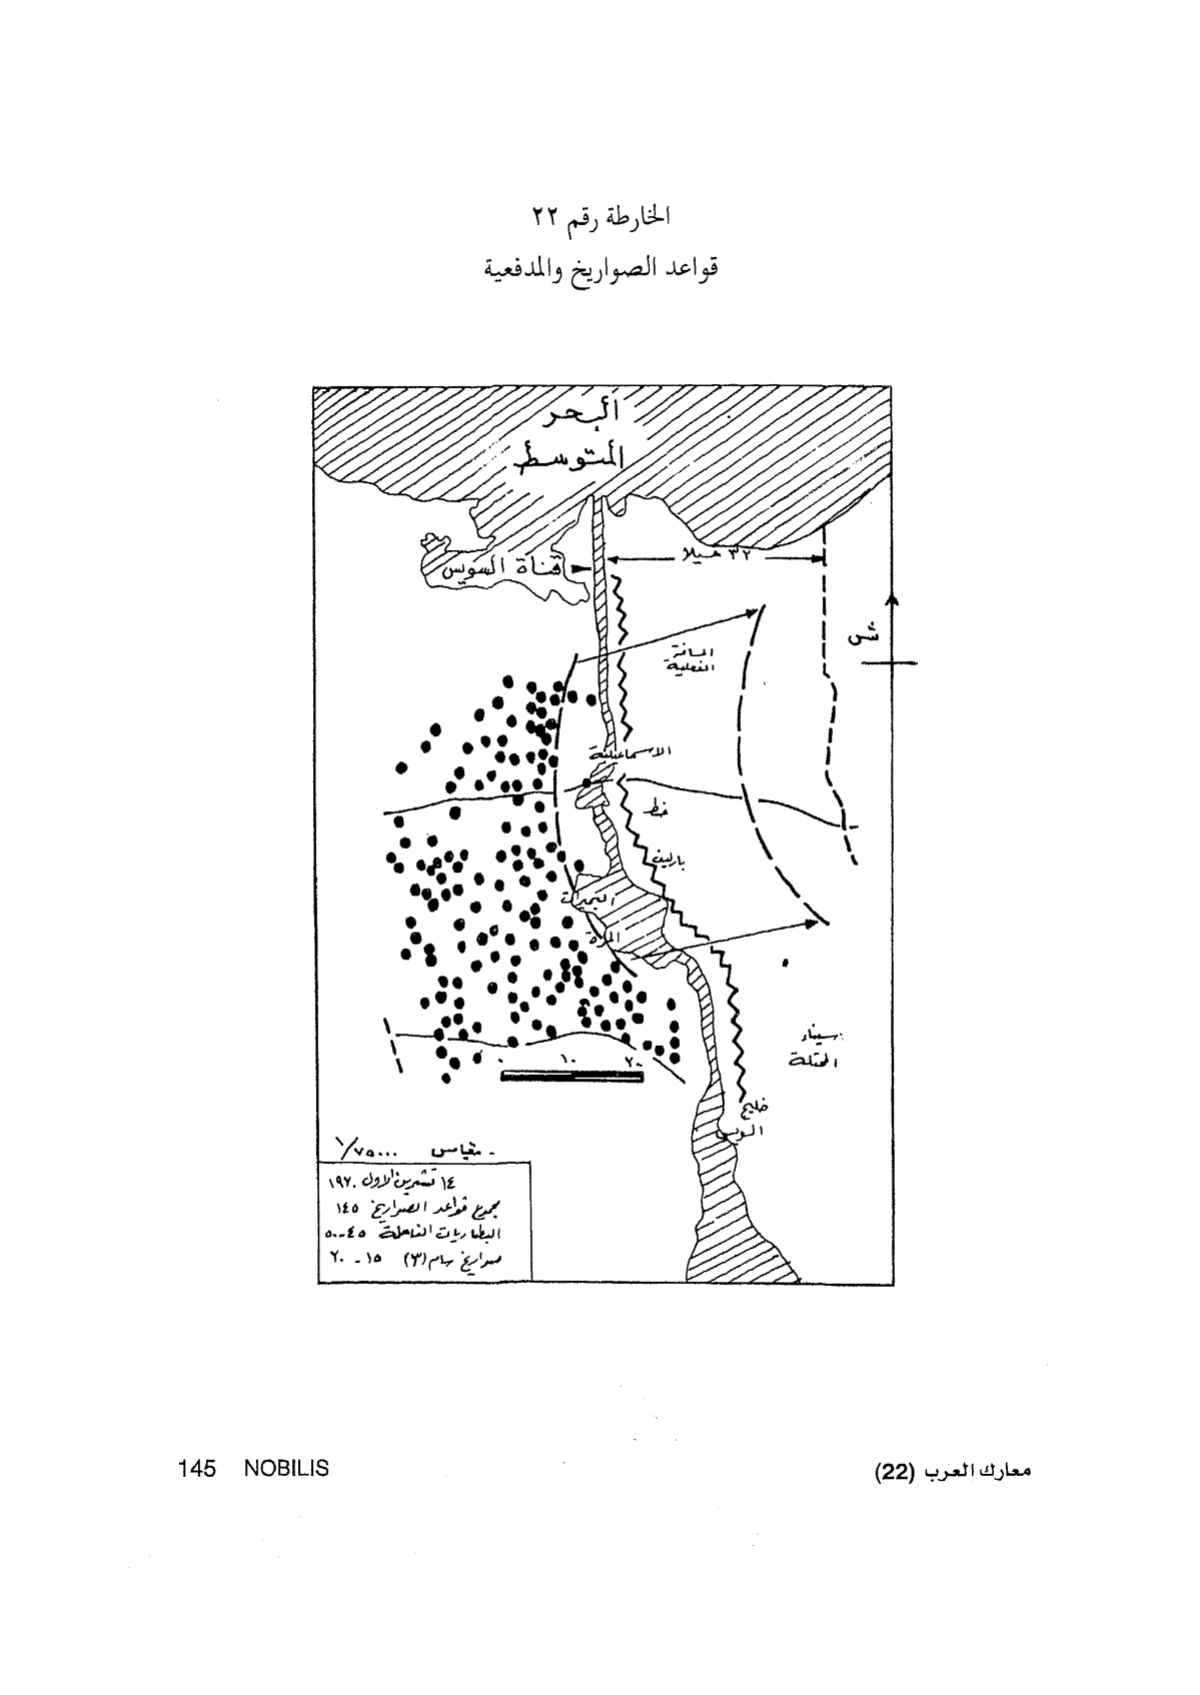 الخارطة رقم ٢٢
قواعد الصواريخ والمدفعية
البحر
المتوسط
قناة السويس
٣٢ ميلا
ش
المسافة
الفعلية
الاسماعيلية
خط
بارليف
البحيرات
المرة
سيناء
المحتلة
٠ ١٠ ٢٠
خليج
السويس
مقياس ١/٧٥٠٠٠
١٤ تشرين الاول ١٩٧٠
مجموع قواعد الصواريخ ١٤٥
البطاريات العاملة ٤٥-٥٠
صواريخ سام (٣) ١٥-٢٠
145 NOBILIS
معارك العرب (22)